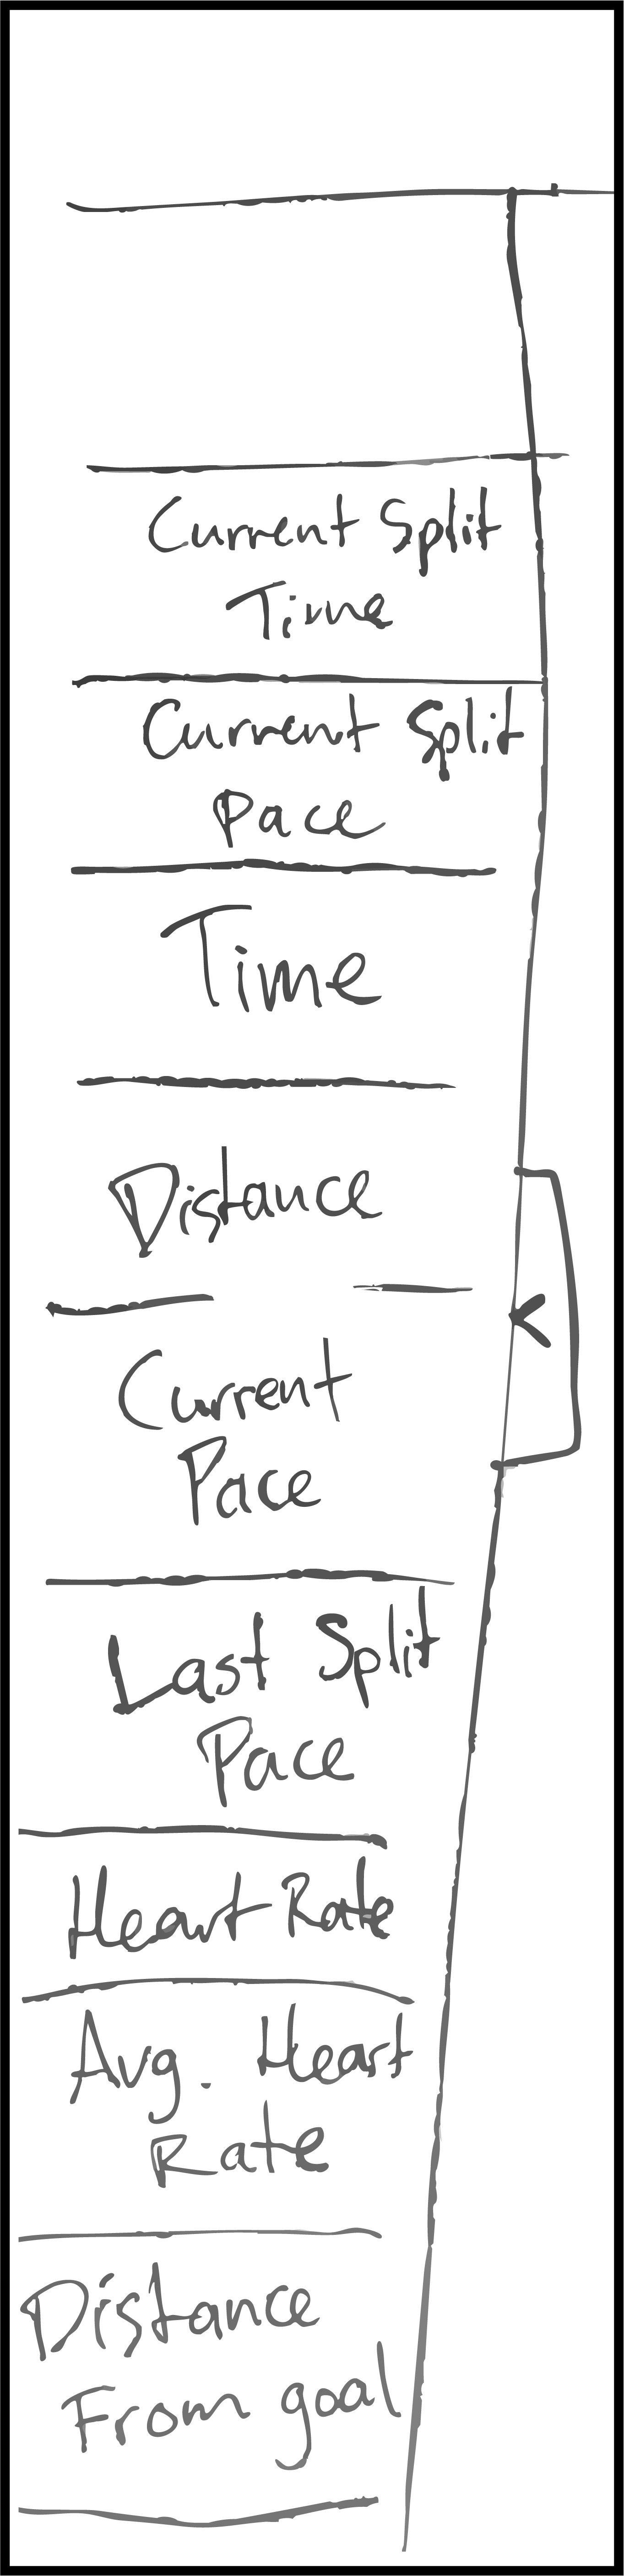 Current Split
Time
Current Split
Pace
Time
Distance
Current
Pace
Last Split
Pace
Heart Rate
Avg. Heart
Rate
Distance
From goal